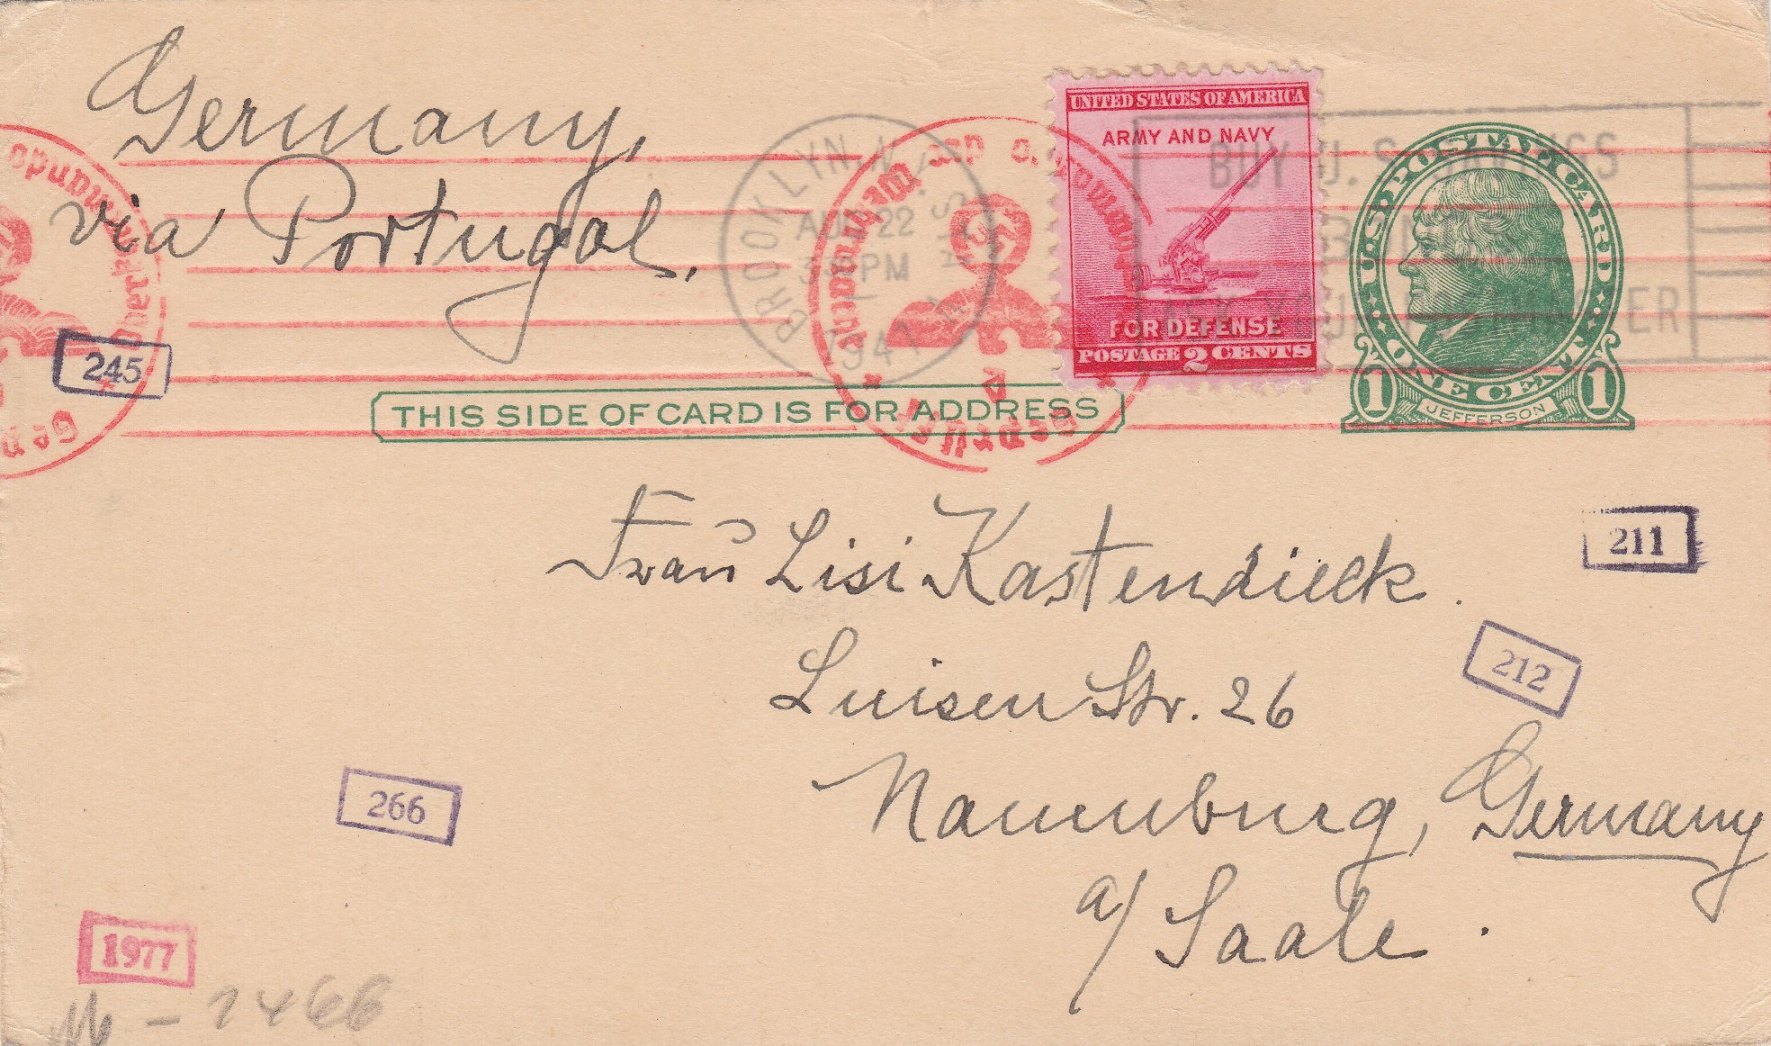 Germany,
via Portugal.
BROOKLYN, N.Y.
AUG 22
PM
1941
UNITED STATES OF AMERICA
ARMY AND NAVY
FOR DEFENSE
POSTAGE 2 CENTS
BUY U. S. SAVINGS
BONDS
ASK YOUR POSTMASTER
U.S. POSTAL CARD
ONE CENT
1 JEFFERSON 1
Oberkommando
Geprüft
Oberkommando der Wehrmacht
Geprüft
245
THIS SIDE OF CARD IS FOR ADDRESS
211
Frau Lisi Kastendieck.
212
Luisen Str. 26
266
Naumburg, Germany
a/ Saale.
1977